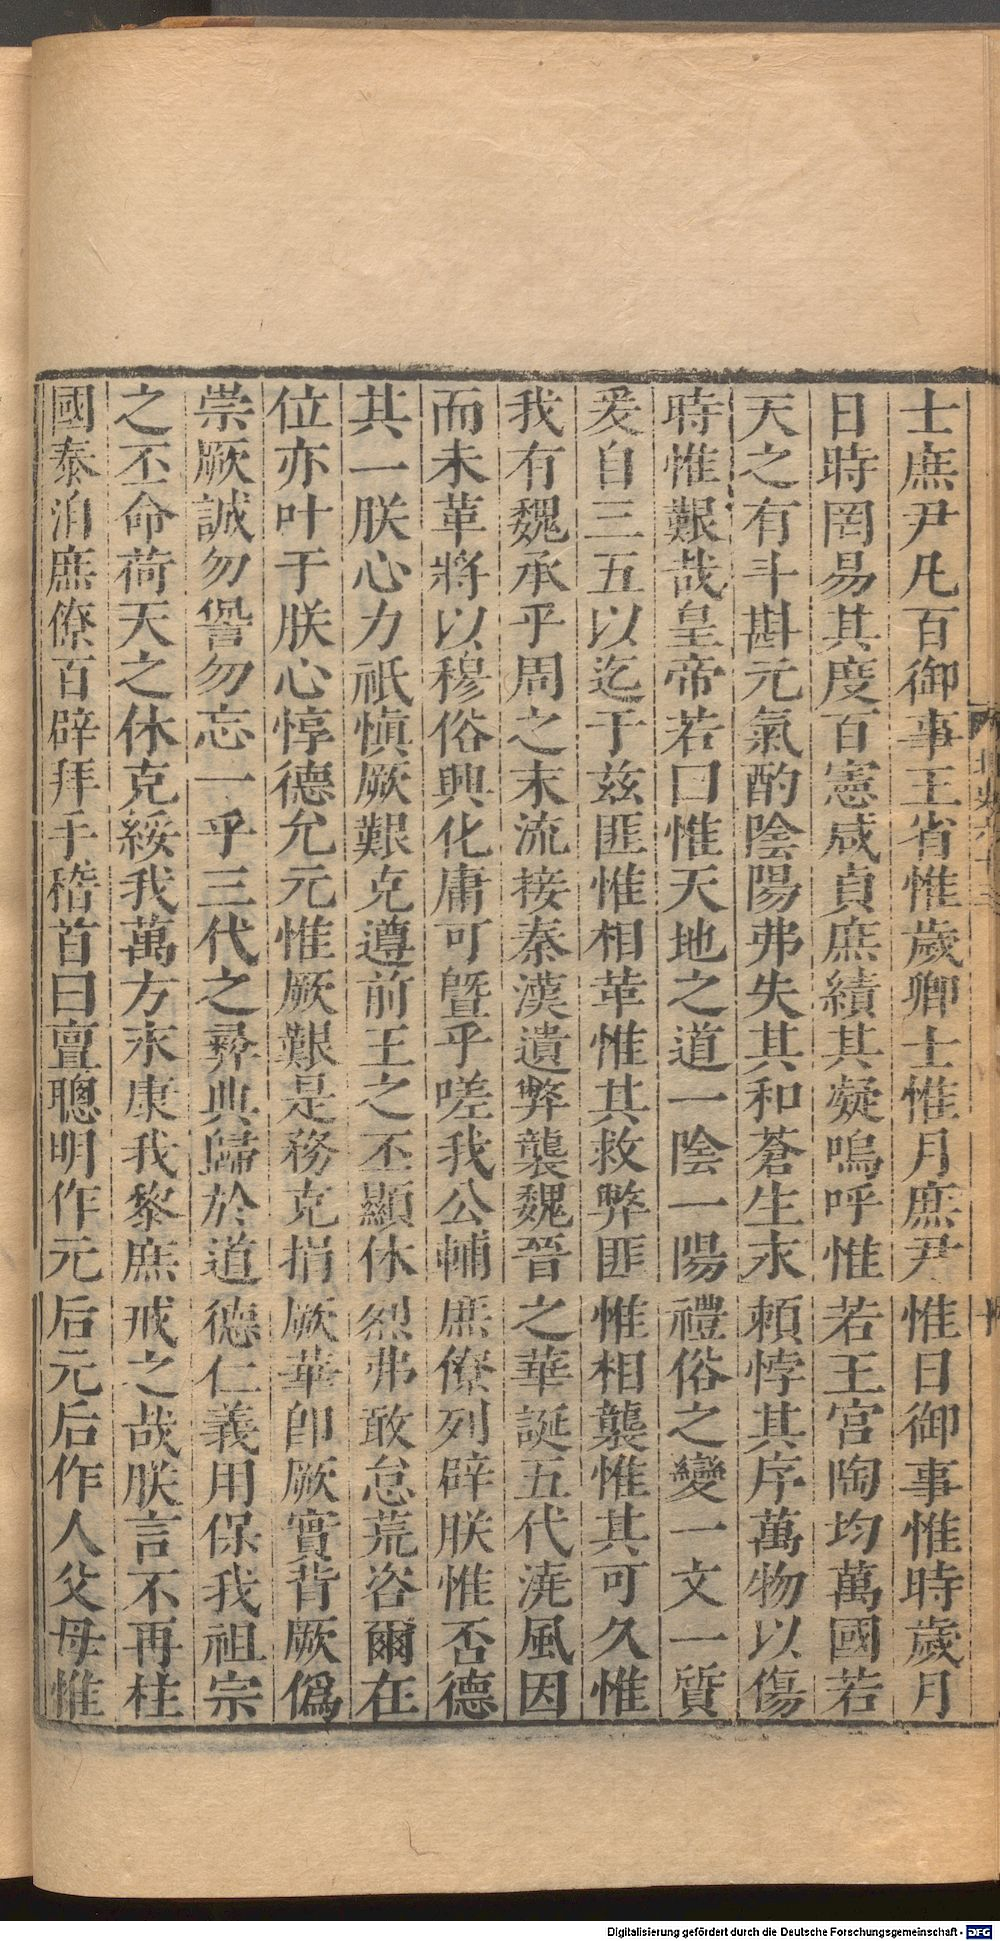 士庶尹凡百御事王省惟歲卿士惟月庶尹惟日御事惟時歲月
日時罔易其度百憲咸貞庶績其凝嗚呼惟若王官陶均萬國若
天之有斗斟元氣酌陰陽弗失其和蒼生永賴悖其序萬物以傷
時惟艱哉皇帝若曰惟天地之道一陰一陽禮俗之變一文一質
爰自三五以迄于兹匪惟相革惟其救弊匪惟相襲惟其可久惟
我有魏承乎周之末流接秦漢遺弊襲魏晉之華誕五代澆風因
而未革將以穆俗興化庸可曁乎嗟我公輔庶僚列辟朕惟否德
其一朕心力祇慎厥艱克遵前王之丕顯休烈弗敢怠荒咨爾在
位亦叶于朕心惇德允元惟厥艱是務克捐厥華卽厥實背厥僞
崇厥誠勿諐勿忘一乎三代之彝典歸於道德仁義用保我祖宗
之丕命荷天之休克綏我萬方永康我黎庶戒之哉朕言不再柱
國泰洎庶僚百辟拜手稽首曰亶聰明作元后元后作人父母惟
Digitalisierung gefördert durch die Deutsche Forschungsgemeinschaft - DFG